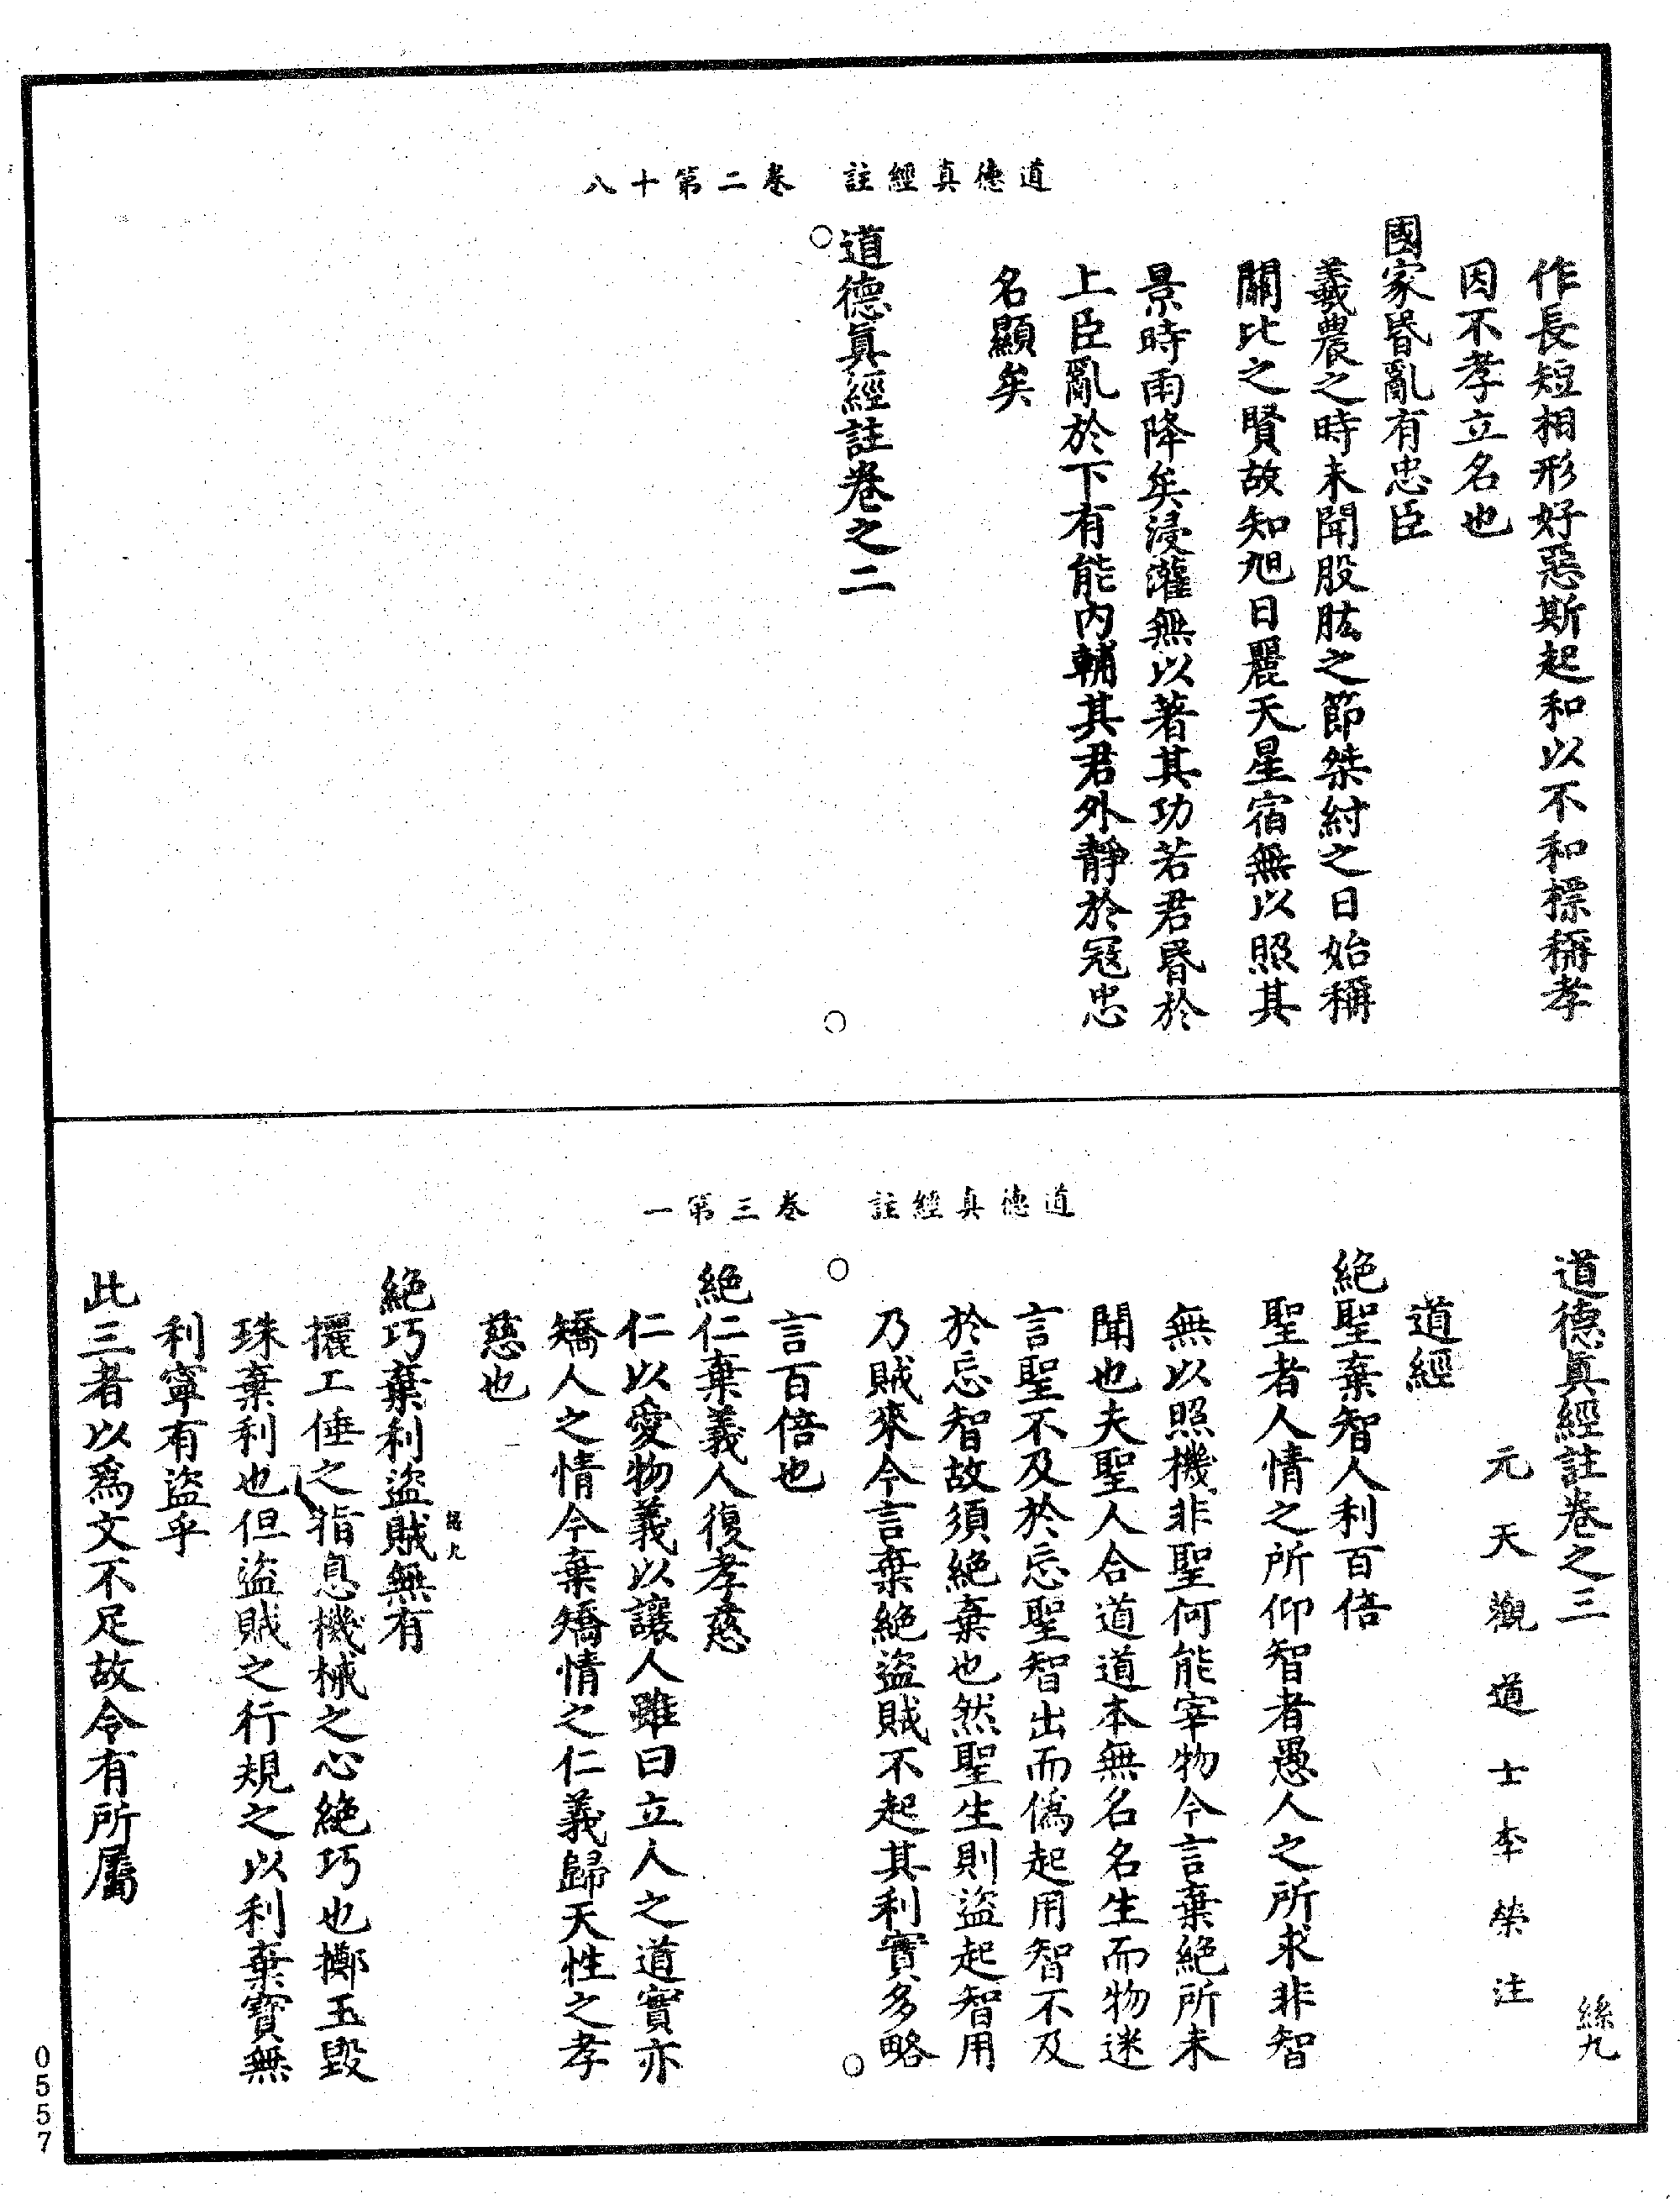 道德真經註　卷二第十八
作長短相形好惡斯起和以不和標稱孝
因不孝立名也
國家昬亂有忠臣
羲農之時未聞股肱之節桀紂之日始稱
關比之賢故知旭日麗天星宿無以照其
景時雨降矣浸灌無以著其功若君昬於
上臣亂於下有能內輔其君外靜於冦忠
名顯矣
道德眞經註卷之二
道德真經註　卷三第一
道德眞經註卷之三　絲九
元天觀道士李榮注
道經
絕聖棄智人利百倍
聖者人情之所仰智者愚人之所求非智
無以照機非聖何能宰物今言棄絕所未
聞也夫聖人合道道本無名名生而物迷
言聖不及於忘聖智出而僞起用智不及
於忘智故須絕棄也然聖生則盜起智用
乃賊來今言棄絕盜賊不起其利實多略
言百倍也
絕仁棄義人復孝慈
仁以愛物義以讓人雖曰立人之道實亦
矯人之情今棄矯情之仁義歸天性之孝
慈也
絕巧棄利盜賊無有
攦工倕之指息機械之心絕巧也擲玉毀
珠棄利也但盜賊之行規之以利棄寶無
利寜有盜乎
此三者以爲文不足故令有所屬
0557